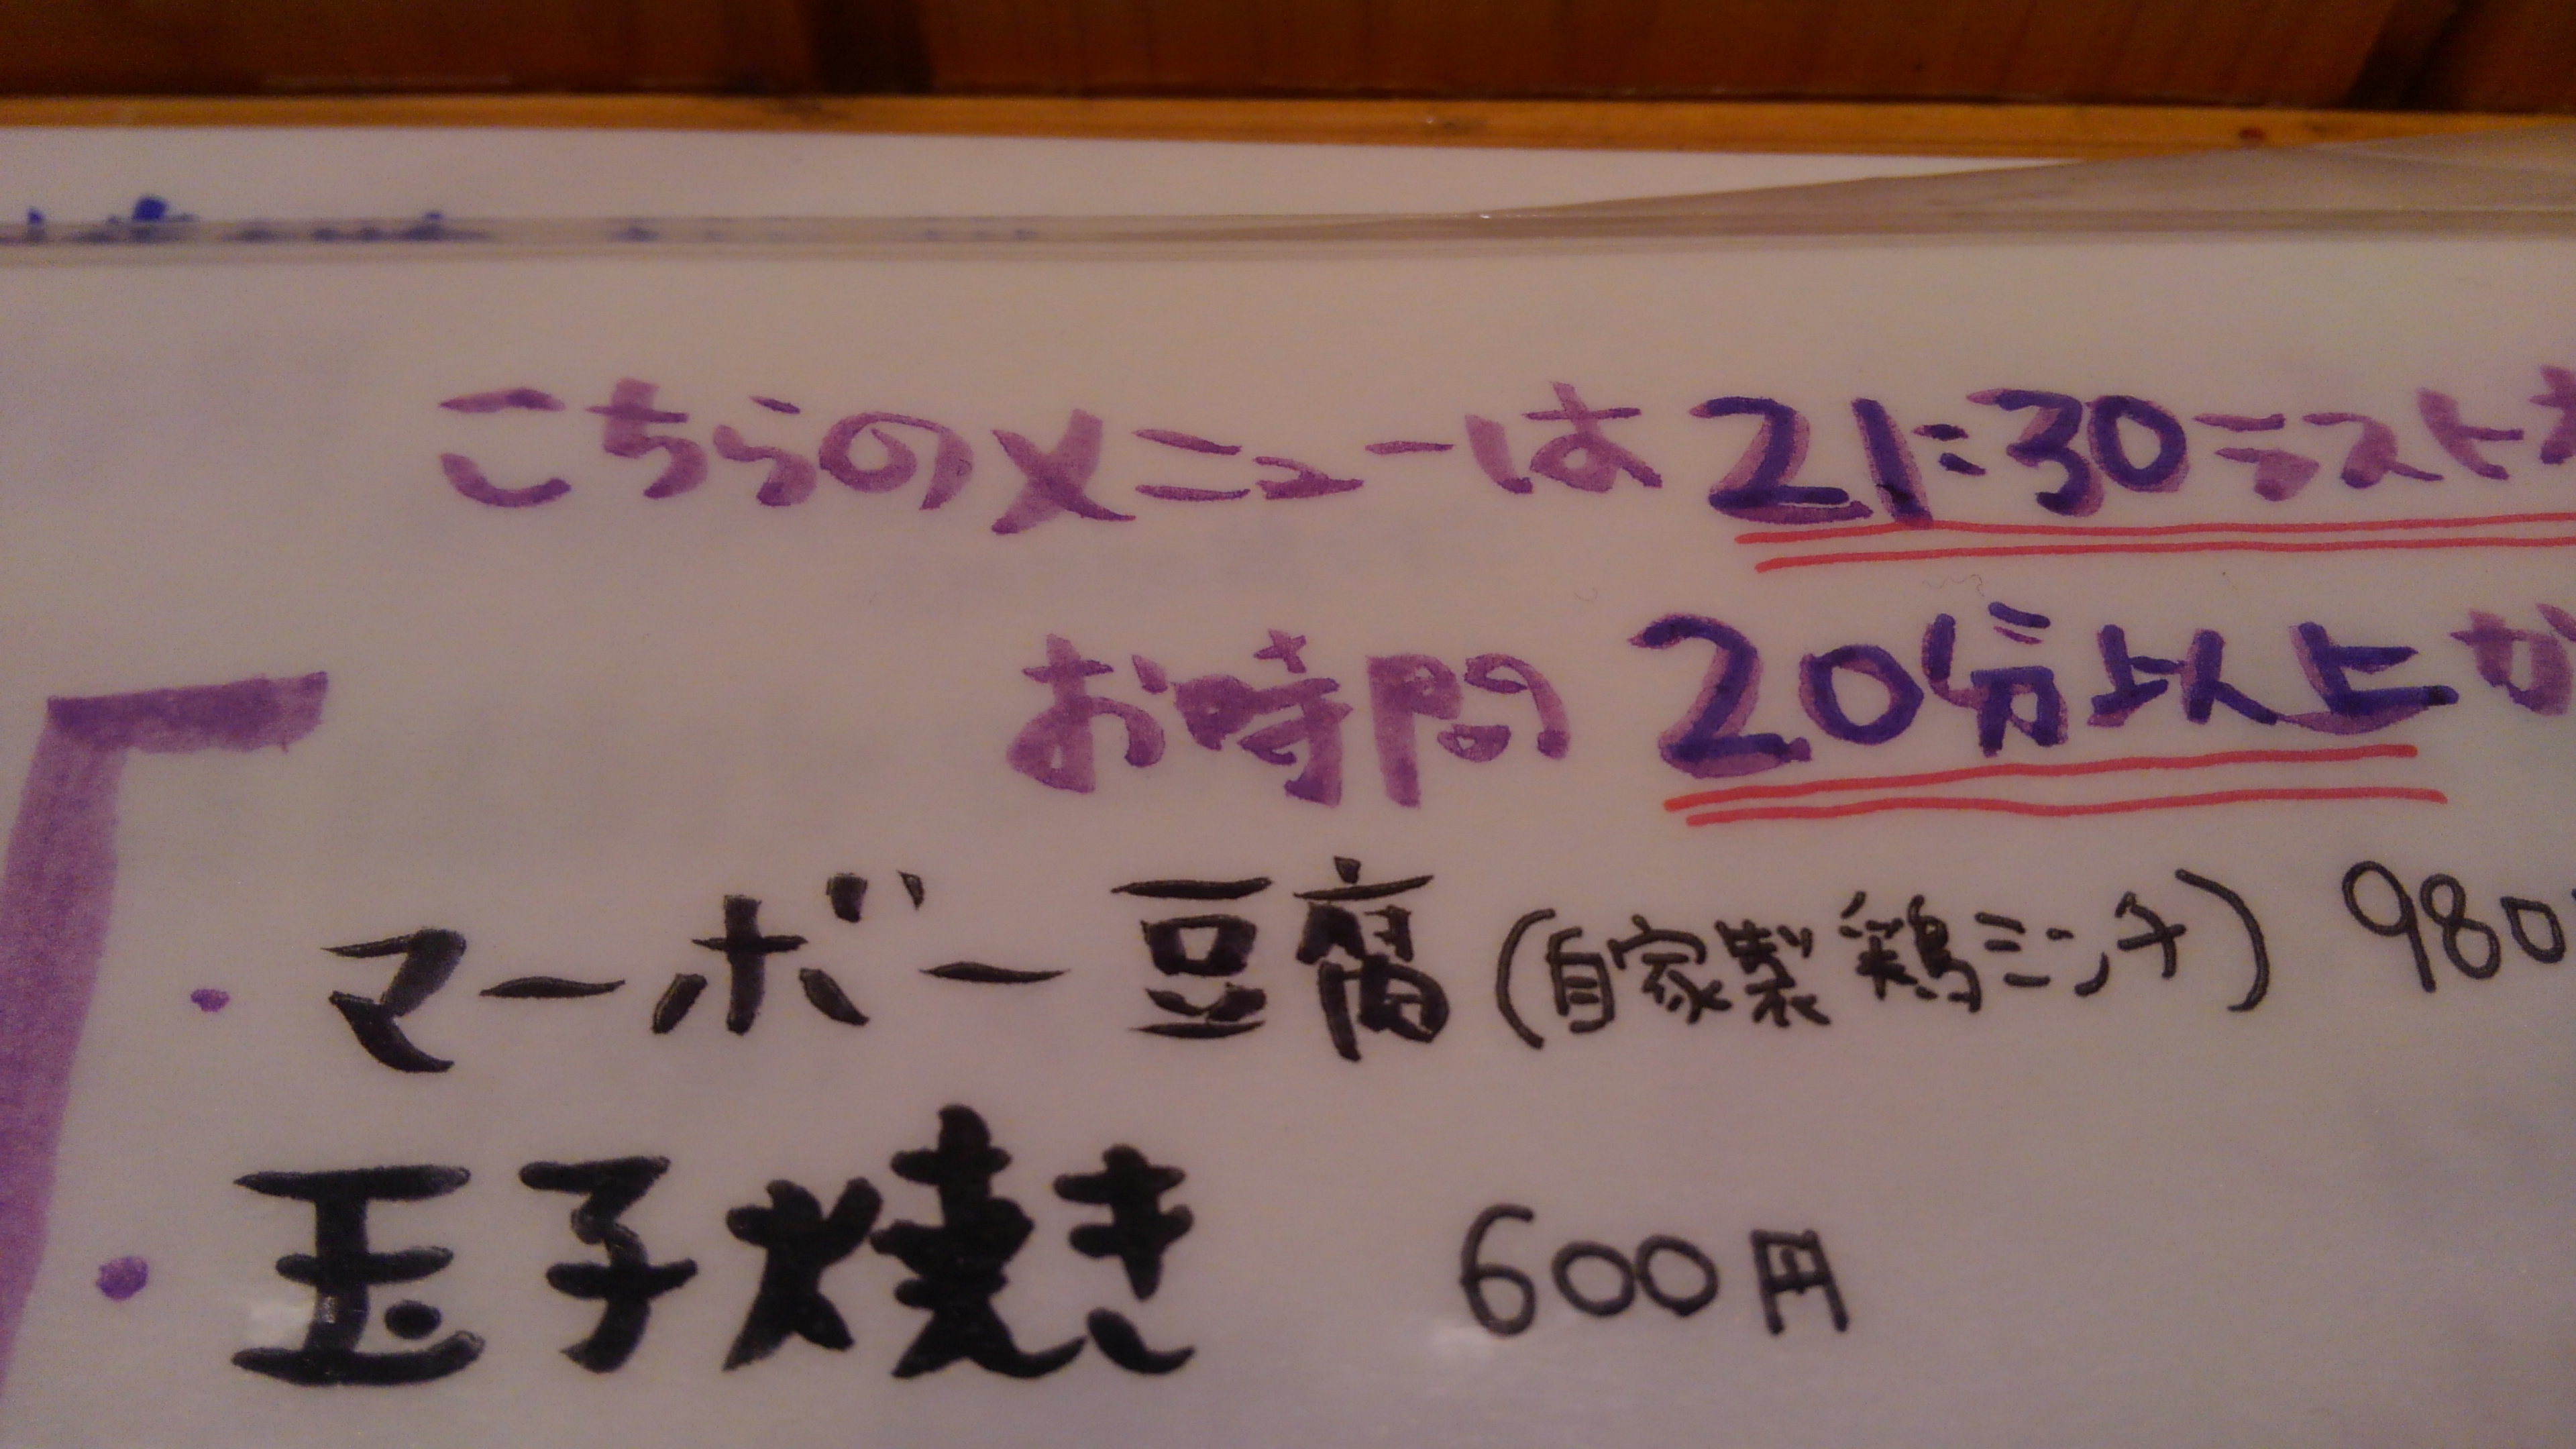 こちらのメニューは21:30ラスト
お時間 20分以上か
・マーボー豆腐(自家製鶏ミンチ) 980
・玉子焼き 600円